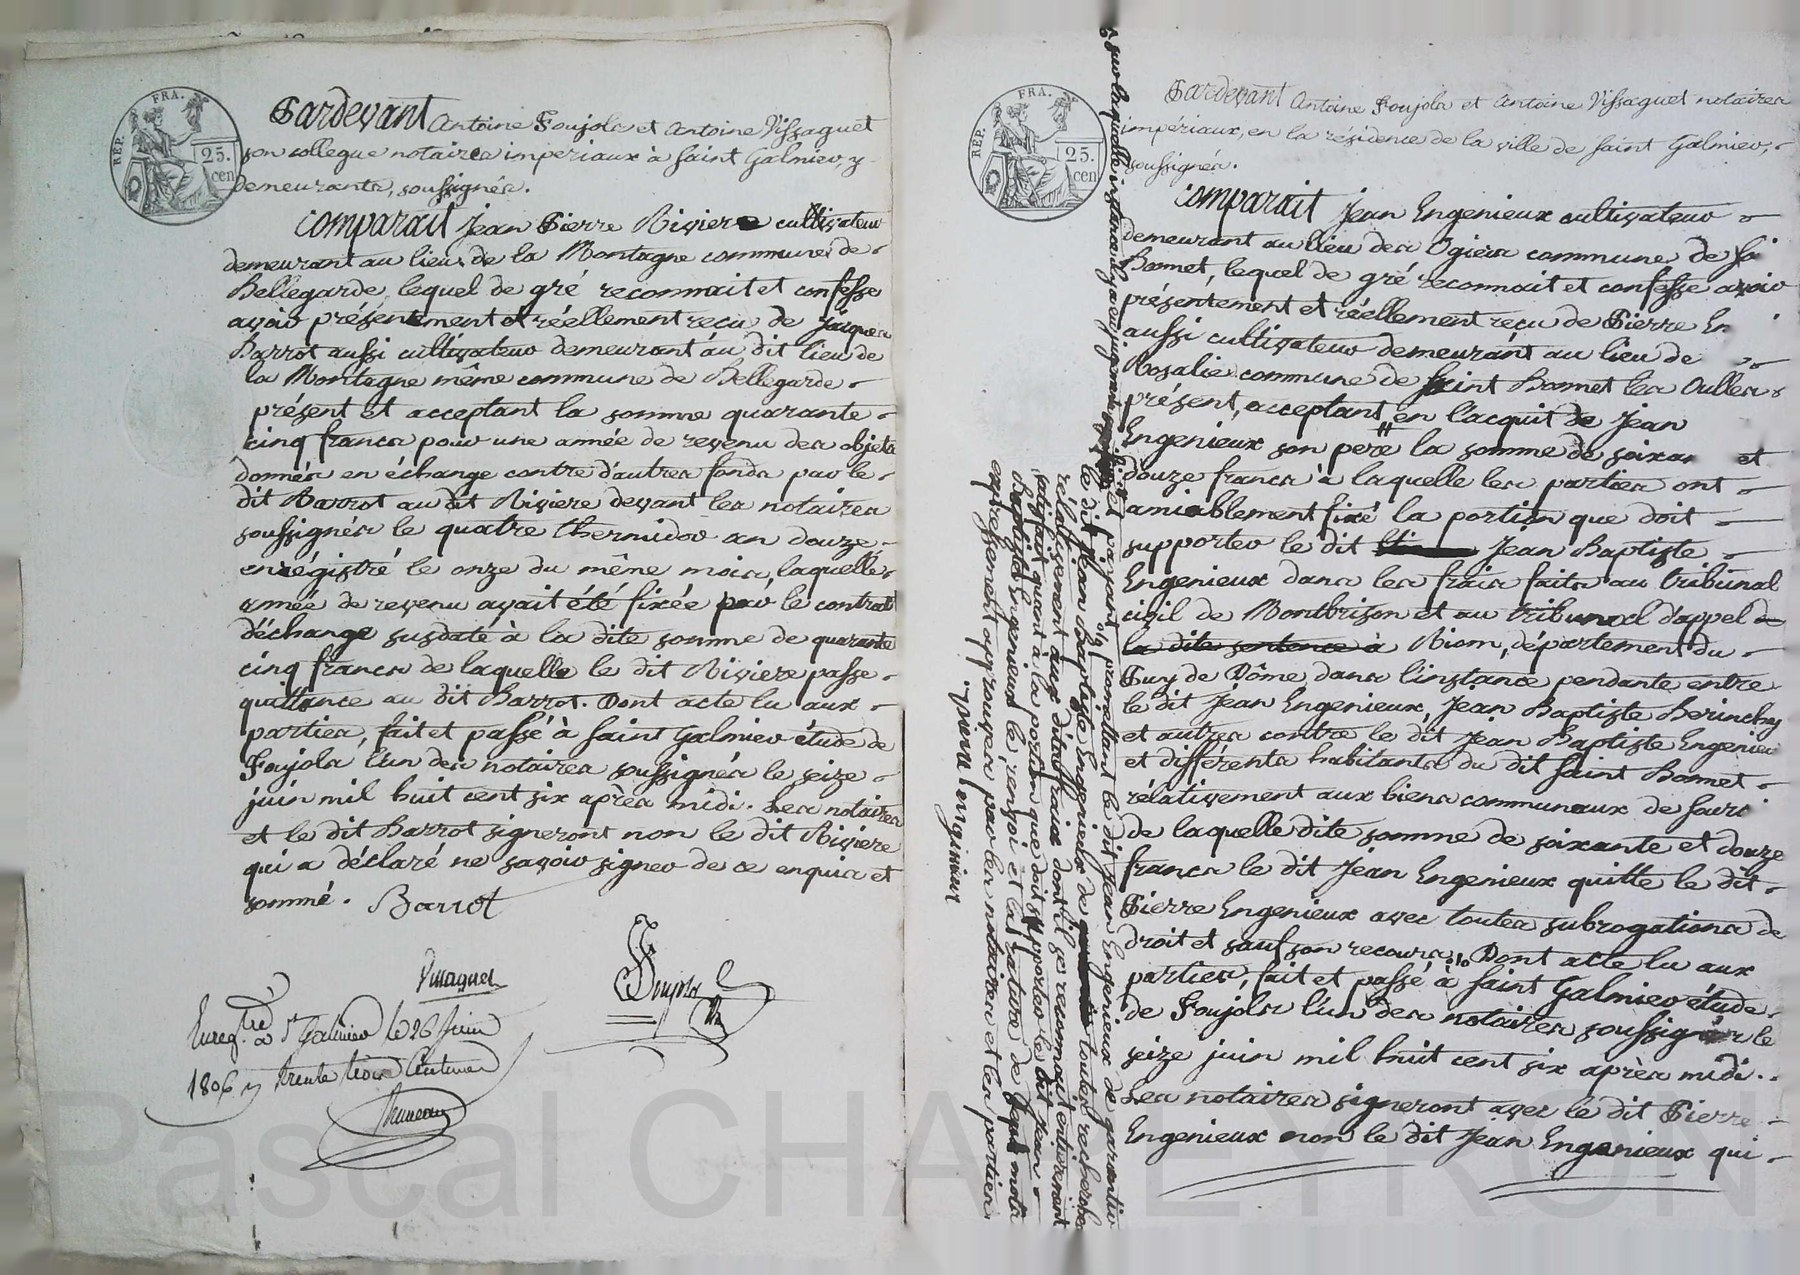 RÉP. FRA.
25.
cen
Pardevant Antoine Foujols et Antoine Vissaguet
son collegue notaires impériaux à Saint Galmier, y
demeurants, soussignés.
Comparait Jean Pierre Riviere cultivateur
demeurant au lieu de la Montagne commune de
Bellegarde, lequel de gré reconnait et confesse
avoir présentement et réellement reçu de Jacques
Barrot aussi cultivateur demeurant au dit lieu de
la Montagne même commune de Bellegarde
présent et acceptant la somme quarante
cinq francs pour une année de revenu des objets
donnés en échange contre d'autres fonds par le
dit Barrot au dit Riviere devant les notaires
soussignés le quatre thermidor an douze
enrégistré le onze du même mois, laquelle
année de revenu avait été fixée par le contrat
d'échange susdaté à la dite somme de quarante
cinq francs de laquelle le dit Riviere passe
quittance au dit Barrot. Dont acte lu aux
parties, fait et passé à Saint Galmier étude de
Foujols l'un des notaires soussignés le seize
juin mil huit cent six après midi. Les notaires
et le dit Barrot signeront non le dit Riviere
qui a déclaré ne savoir signer de ce enquis et
sommé. Barrot
Vissaguet
Foujols
Enregtré à St Galmier le 26 Juin
1806 trente trois Centimes
RÉP. FRA.
25.
cen
Pardevant Antoine Foujols et Antoine Vissaguet notaires
impériaux, en la résidence de la ville de Saint Galmier,
soussignés.
Comparait Jean Engenieux cultivateur
demeurant au lieu des Ogiers commune de
Bonnet, lequel de gré reconnait et confesse avoir
présentement et réellement reçu de Pierre En
aussi cultivateur demeurant au lieu de
Rosalie commune de Saint Bonnet les Oulles
présent, acceptant en l'acquit de Jean
Engenieux son pere la somme de soixan et
douze francs à laquelle les parties ont
amiablement fixé la portion que doit
supporter le dit Jean Baptiste
Engenieux dans les frais faits au tribunal
civil de Montbrison et au tribunal d'appel de
la dite sentence à Riom, département du
Puy de Dôme dans l'instance pendante entre
le dit Jean Engenieux, Jean Baptiste Berinchy
et autres contre le dit Jean Baptiste Engenieu
et différents habitants du dit Saint Bonnet
rélativement aux biens communaux de
de laquelle dite somme de soixante et douze
francs le dit Jean Engenieux quitte le dit
Pierre Engenieux avec toutes subrogations de
droit et sauf son recours. Dont acte lu aux
parties, fait et passé à Saint Galmier étude
de Foujols l'un des notaires soussignés le
seize juin mil huit cent six après midi.
Les notaires signeront avec le dit Pierre
Engenieux non le dit Jean Engenieux qui
sur laquelle instance il y a eu jugement
promettant le dit Jean Engenieux de garantir
le dit Jean Baptiste Engenieux de toutes recherches
rélativement aux dits frais dont il se reconnait entierement
satisfait quant à la portion que doit supporter le dit Jean
Baptiste Engenieux le renvoi et la rature de mots
expressement approuvés par les notaires et les parties
pierre enginieux
Pascal CHAPEYRON